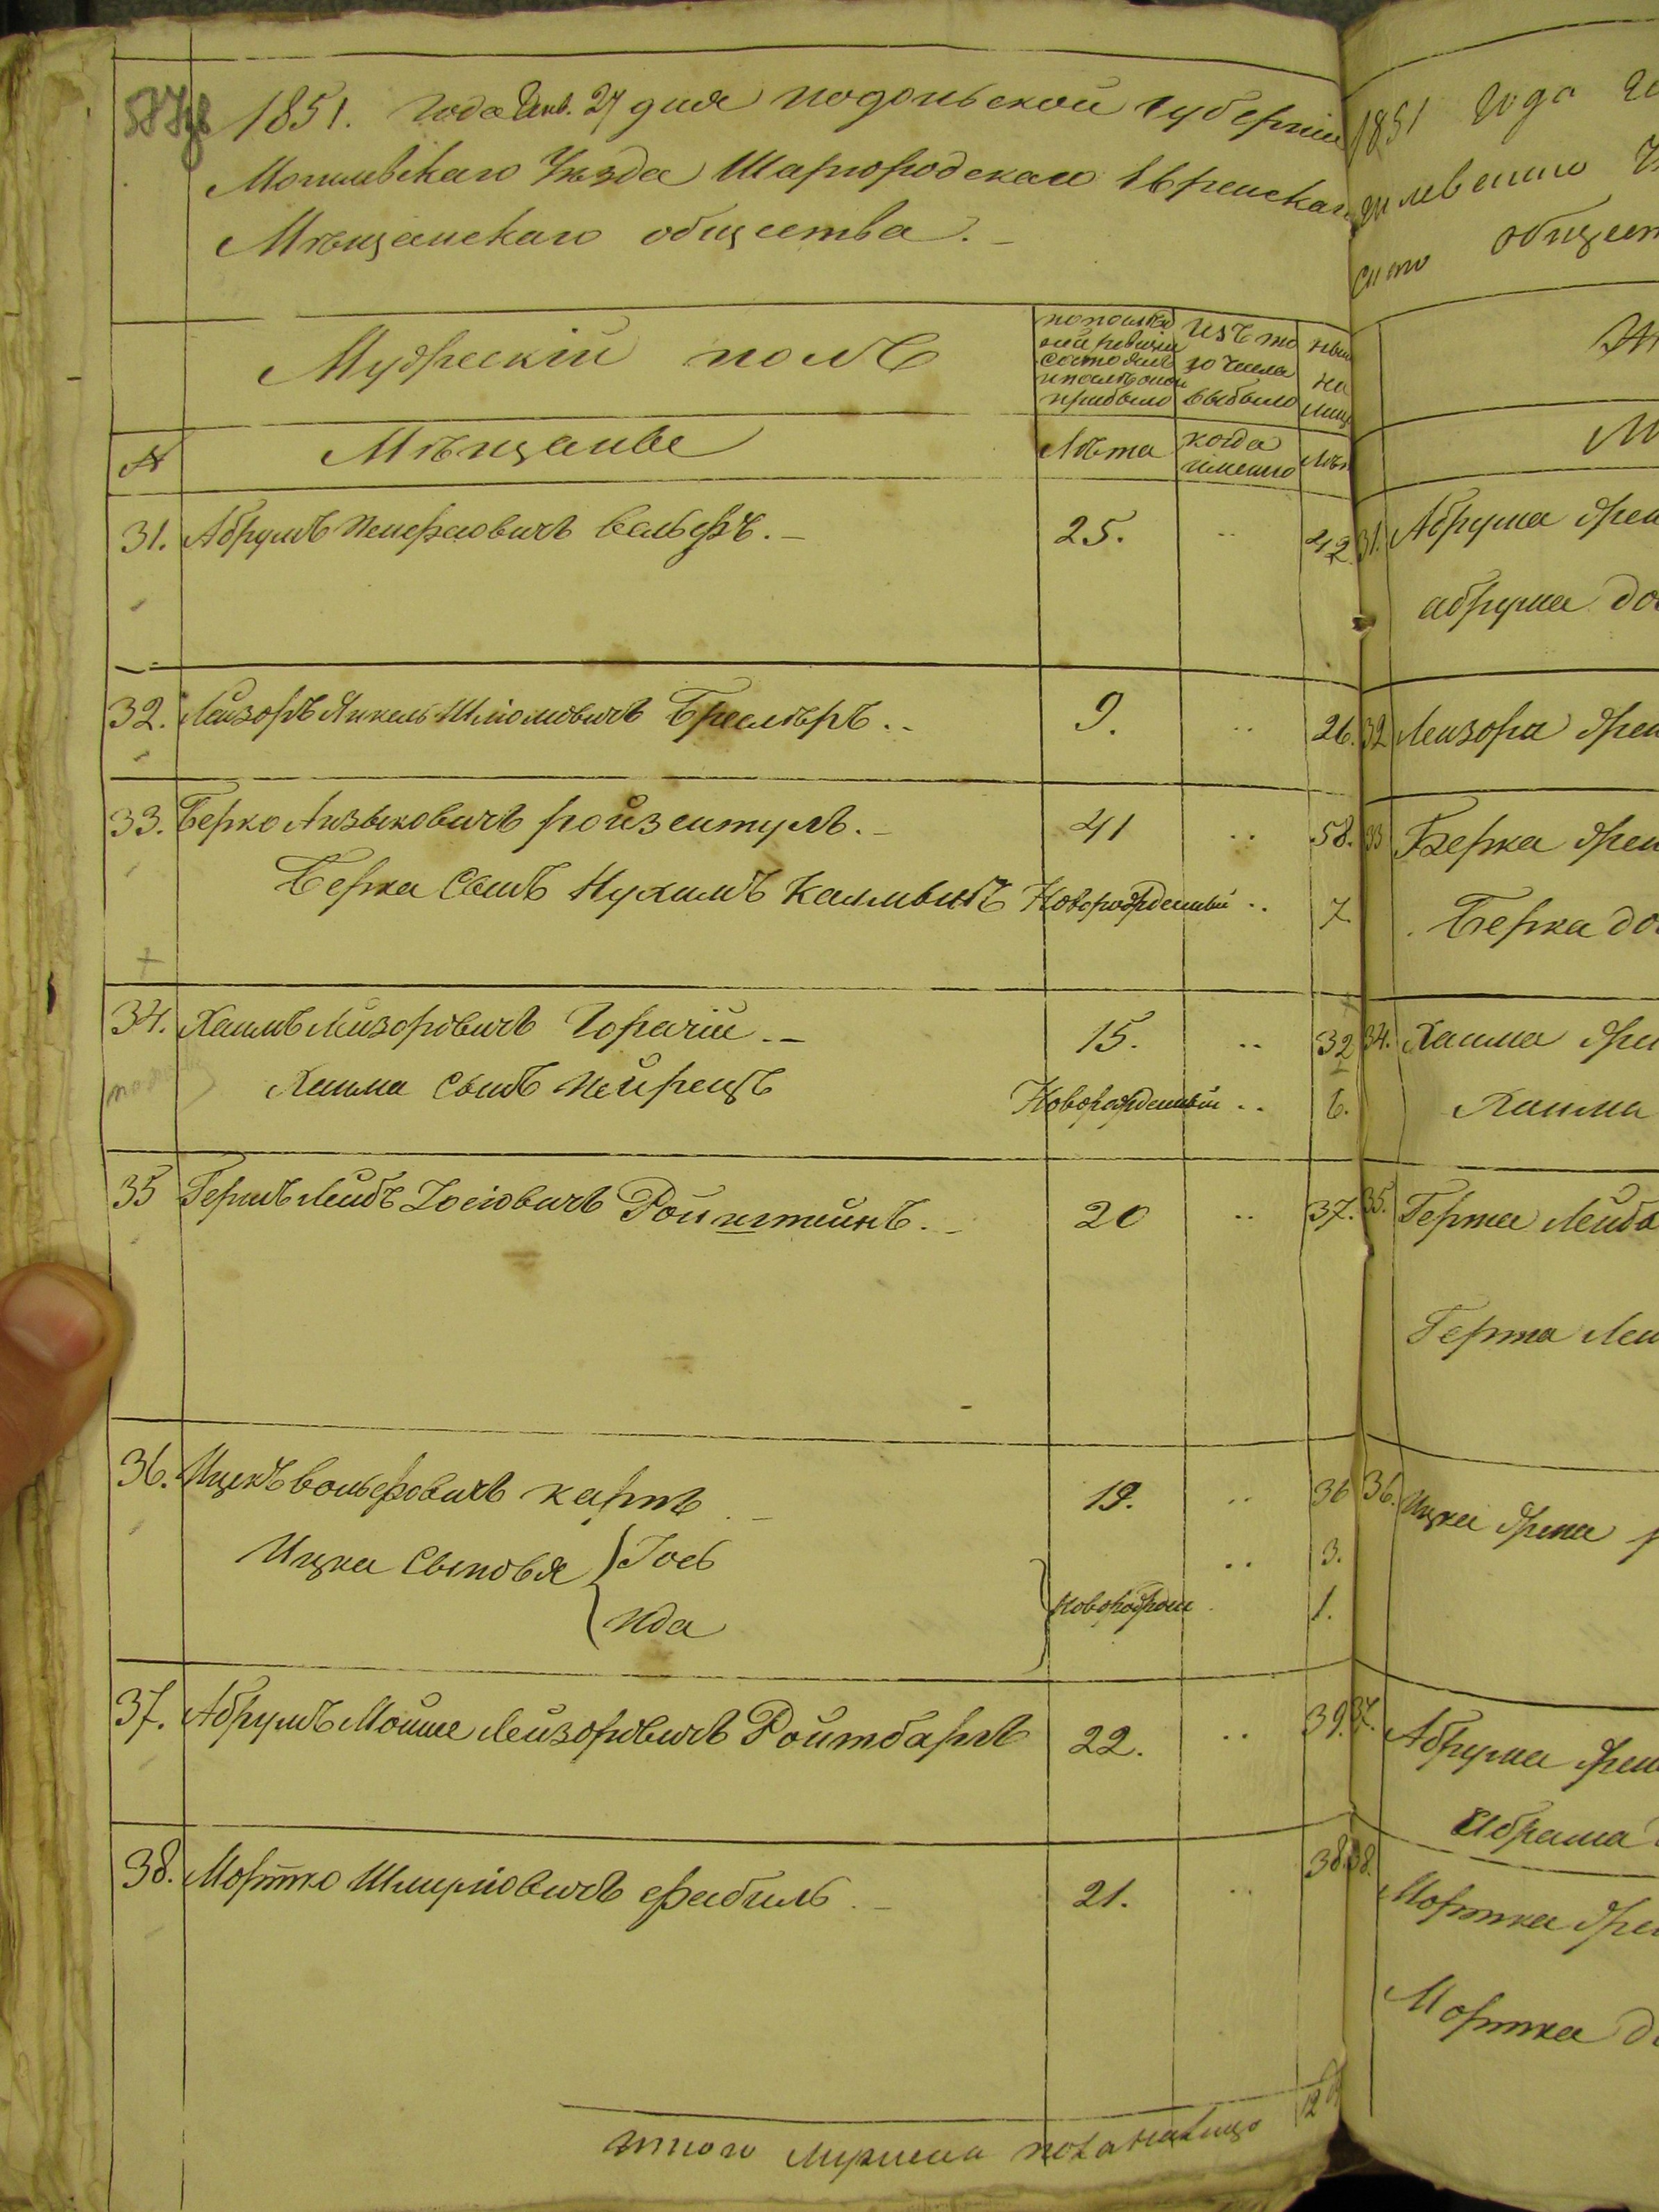 1851. года Генв. 27 дня Подольской Губерніи
Могилевскаго Уѣзда Шаргородскаго Еврейскаго
Мѣщанскаго общества. –
Мужескій полъ
по послѣд
ней ревизіи
состояло
и послѣ оной
прибыло
изъ то
го числа
выбыло
ныне
на
лицо
№
Мѣщане
Лѣта
когда
именно
Лѣта
31. Абрумъ Вольфъ. – 25. 42
32. Лейзоръ Янкель Шліомовичъ Бреслеръ. 9. 26.
33. Берко Айзыковичъ Ройзентулъ. – 41 58.
Берка Сынъ Нухимъ Калмынъ Новорожденный 7.
34. Хаимъ Лейзоровичъ Горачій – 15. 32
Хаима Сынъ Пейрецъ Новорожденный 6.
35 Гершъ Лейбъ Іосіовичъ Ройнштейнъ. – 20 37.
36. Ицекъ Вольфовичъ Карпъ 19. 36
Ицка Сыновья Іось 3.
Ида новорожден 1.
37. Абрумъ Мойше Лейзоровичъ Ройтбаргъ 22. 39.
38. Мортко Шмуліовичъ Фабиль – 21. 38.
итого мужеска пола налицо 12
1851 года
общест
31. Абрума жен
абрума до
32 Лейзора жен
33 Берка жен
Берка до
34. Хаима же
Хаима
35. Герша Лейба
Герша Лей
36. Ицка жена
37. Абрума жен
Абрама
38. Мортка же
Мортка д